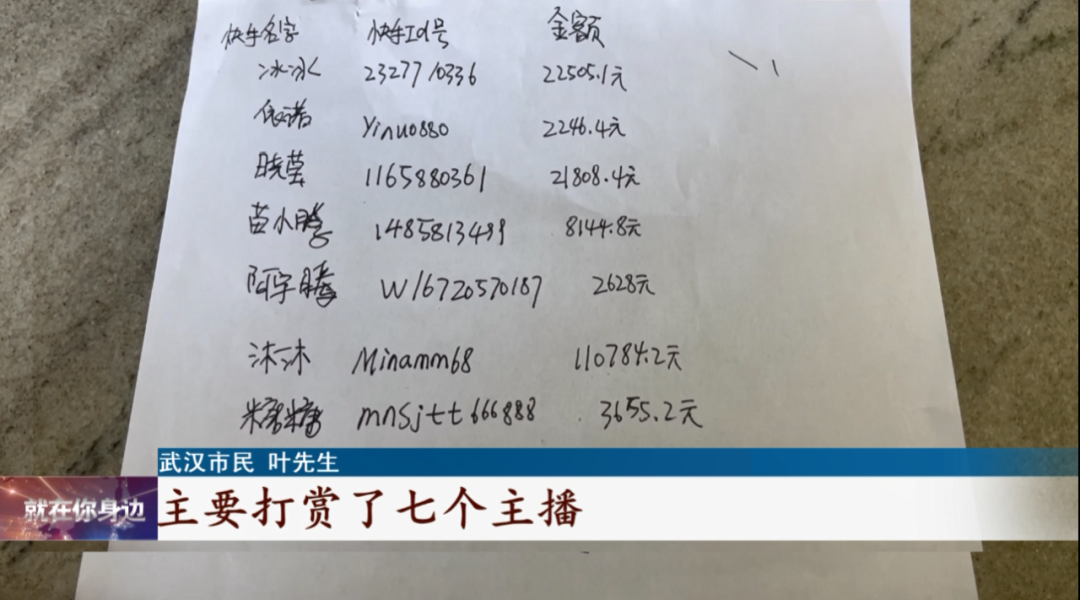 快手名字 快手Id号 金额
冰冰 2327710336 22505.1元
依诺 Yinuo880 2246.4元
晓莹 1165880361 21808.4元
苗小腾 1485813499 8144.8元
阿宇腾 W16720570187 2628元
沐沐 Minamm68 110784.2元
糖糖 mnsjtt666888 3655.2元
武汉市民 叶先生
就在你身边
主要打赏了七个主播